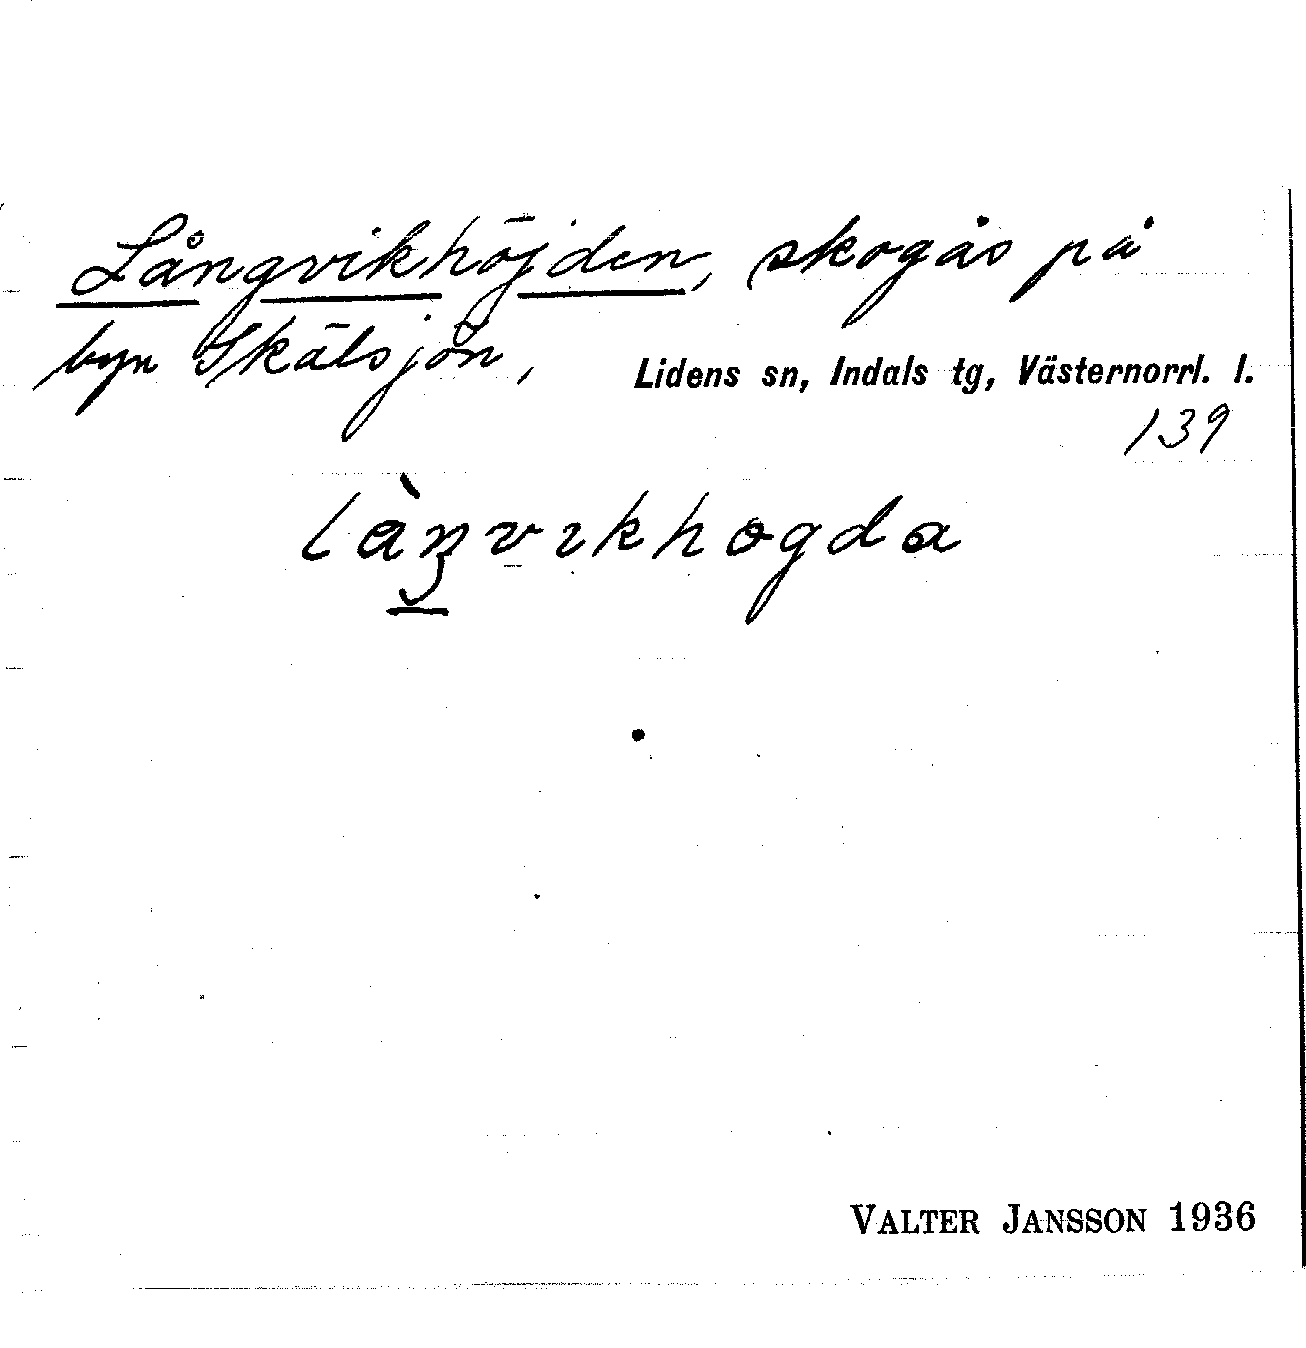 Långvikhöjden, skogås på
byn Skälsjön,
Lidens sn, Indals tg, Västernorrl. l.
139
làŋvıkhogda
VALTER JANSSON 1936